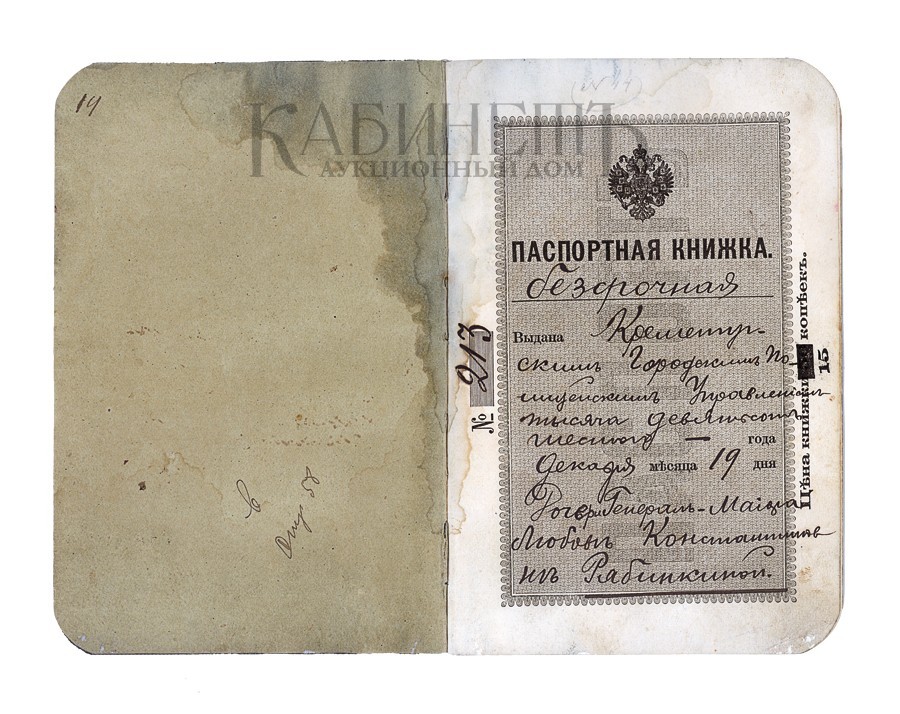 19
КАБИНЕТЪ
АУКЦИОННЫЙ ДОМ
ПАСПОРТНАЯ КНИЖКА.
безсрочная
Выдана Кременчуг-
скимъ Городскимъ По-
лицейскимъ Управленіемъ
тысяча девятьсотъ
шестого — года
Декабря мѣсяца 19 дня
Генералъ-Маіора
Любовь Константинов
нѣ Рябинкиной.
№ 213
Цѣна книжки 15 копѣекъ.